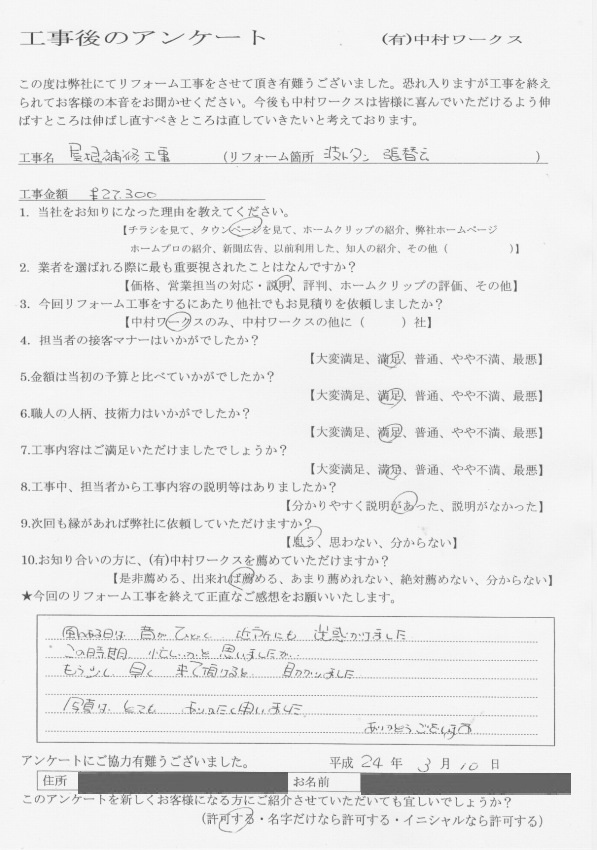 工事後のアンケート (有)中村ワークス
この度は弊社にてリフォーム工事をさせて頂き有難うございました。恐れ入りますが工事を終え
られてお客様の本音をお聞かせください。今後も中村ワークスは皆様に喜んでいただけるよう伸
ばすところは伸ばし直すべきところは直していきたいと考えております。
工事名 屋根補修工事 (リフォーム箇所 波トタン 張替え )
工事金額 ¥27.300
1. 当社をお知りになった理由を教えてください。
【チラシを見て、タウンページを見て、ホームクリップの紹介、弊社ホームページ
ホームプロの紹介、新聞広告、以前利用した、知人の紹介、その他( )】
2. 業者を選ばれる際に最も重要視されたことはなんですか?
【価格、営業担当の対応・説明、評判、ホームクリップの評価、その他】
3. 今回リフォーム工事をするにあたり他社でもお見積りを依頼しましたか?
【中村ワークスのみ、中村ワークスの他に( )社】
4. 担当者の接客マナーはいかがでしたか?
【大変満足、満足、普通、やや不満、最悪】
5.金額は当初の予算と比べていかがでしたか?
【大変満足、満足、普通、やや不満、最悪】
6.職人の人柄、技術力はいかがでしたか?
【大変満足、満足、普通、やや不満、最悪】
7.工事内容はご満足いただけましたでしょうか?
【大変満足、満足、普通、やや不満、最悪】
8.工事中、担当者から工事内容の説明等はありましたか?
【分かりやすく説明があった、説明がなかった】
9.次回も縁があれば弊社に依頼していただけますか?
【思う、思わない、分からない】
10.お知り合いの方に、(有)中村ワークスを薦めていただけますか?
【是非薦める、出来れば薦める、あまり薦めれない、絶対薦めない、分からない】
★今回のリフォーム工事を終えて正直なご感想をお願いいたします。
風のある日は 音がひどく 近所にも 迷惑かけました
この時期 忙しいかと 思いましたが、
もう少し 早く 来て頂けると 助かりました
写真は、とても ありがたく思いました
ありがとうございます
アンケートにご協力有難うございました。 平成 24 年 3 月 10 日
住所 お名前
このアンケートを新しくお客様になる方にご紹介させていただいても宜しいでしょうか?
(許可する・名字だけなら許可する・イニシャルなら許可する)